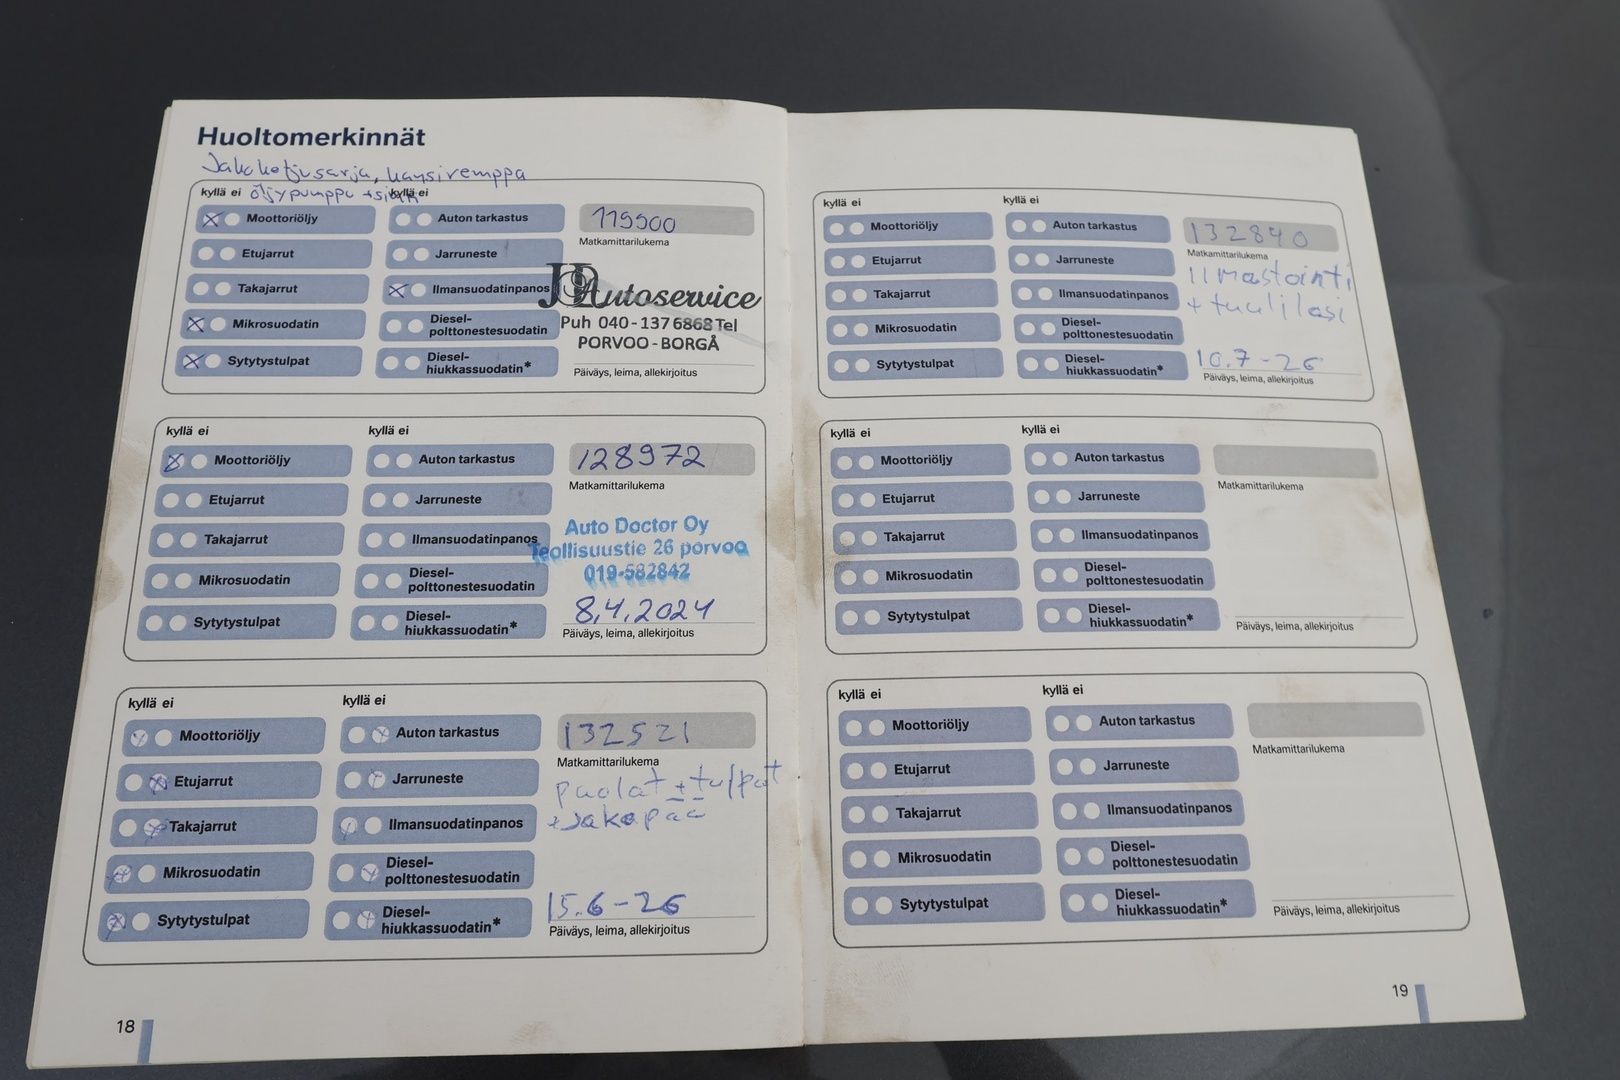 Huoltomerkinnät
Jakoketjusarja, kansiremppa
öljypumppu
kyllä ei
kyllä ei
Moottoriöljy
Auton tarkastus
119900
Matkamittarilukema
Etujarrut
Jarruneste
Takajarrut
Ilmansuodatinpanos
Autoservice
Mikrosuodatin
Diesel-
polttonestesuodatin
Puh 040-137 6868 Tel
PORVOO - BORGÅ
Sytytystulpat
Diesel-
hiukkassuodatin*
Päiväys, leima, allekirjoitus
kyllä ei
kyllä ei
Moottoriöljy
Auton tarkastus
128972
Matkamittarilukema
Etujarrut
Jarruneste
Takajarrut
Ilmansuodatinpanos
Auto Doctor Oy
Teollisuustie 26 porvoo
019-582842
Mikrosuodatin
Diesel-
polttonestesuodatin
Sytytystulpat
Diesel-
hiukkassuodatin*
8.4.2024
Päiväys, leima, allekirjoitus
kyllä ei
kyllä ei
Moottoriöljy
Auton tarkastus
132521
Matkamittarilukema
Etujarrut
Jarruneste
puolat + tulpat
+ Jakopää
Takajarrut
Ilmansuodatinpanos
Mikrosuodatin
Diesel-
polttonestesuodatin
Sytytystulpat
Diesel-
hiukkassuodatin*
15.6-26
Päiväys, leima, allekirjoitus
18
kyllä ei
kyllä ei
Moottoriöljy
Auton tarkastus
132840
Matkamittarilukema
Etujarrut
Jarruneste
Ilmastointi
+ tuulilasi
Takajarrut
Ilmansuodatinpanos
Mikrosuodatin
Diesel-
polttonestesuodatin
Sytytystulpat
Diesel-
hiukkassuodatin*
10.7-26
Päiväys, leima, allekirjoitus
kyllä ei
kyllä ei
Moottoriöljy
Auton tarkastus
Matkamittarilukema
Etujarrut
Jarruneste
Takajarrut
Ilmansuodatinpanos
Mikrosuodatin
Diesel-
polttonestesuodatin
Sytytystulpat
Diesel-
hiukkassuodatin*
Päiväys, leima, allekirjoitus
kyllä ei
kyllä ei
Moottoriöljy
Auton tarkastus
Matkamittarilukema
Etujarrut
Jarruneste
Takajarrut
Ilmansuodatinpanos
Mikrosuodatin
Diesel-
polttonestesuodatin
Sytytystulpat
Diesel-
hiukkassuodatin*
Päiväys, leima, allekirjoitus
19